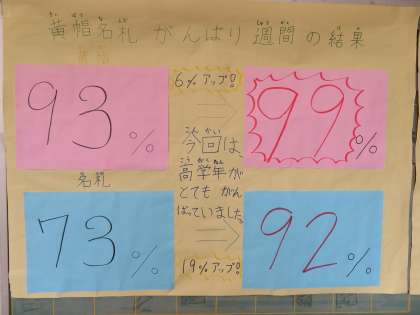 黄帽名札がんばり週間の結果
黄帽
93%
6%アップ!
99%
今回は、
高学年が
とてもがん
ばっていました。
名札
73%
19%アップ!
92%